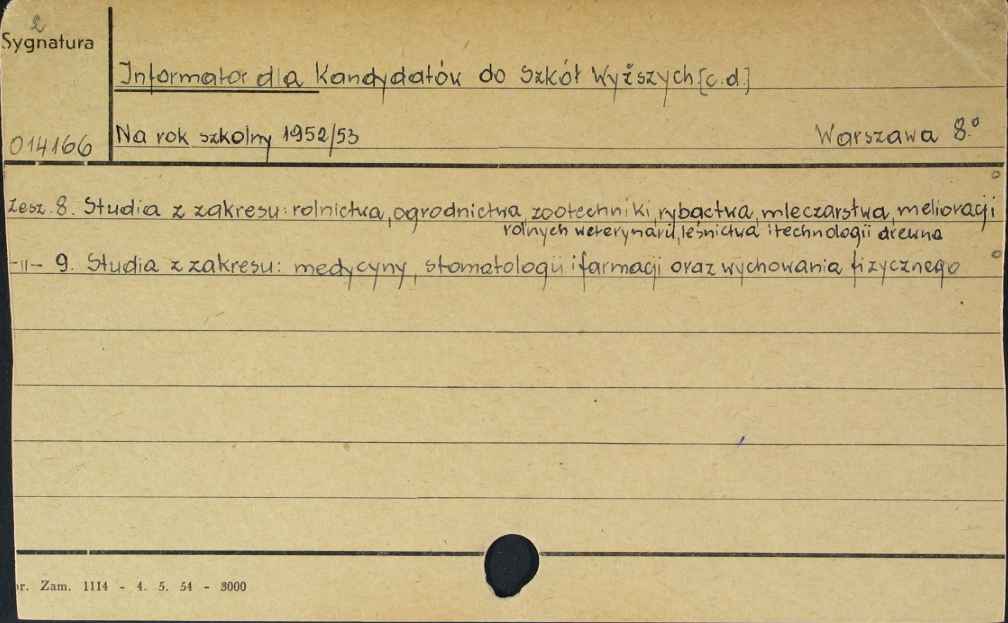 2
Sygnatura
Informator dla Kandydatów do Szkół Wyższych [c.d.]
014166
Na rok szkolny 1952/53 Warszawa 8.°
Zesz. 8. Studia z zakresu: rolnictwa, ogrodnictwa, zootechniki, rybactwa, mleczarstwa, melioracji
rolnych weterynarii, leśnictwa i technologii drewna
-"- 9. Studia z zakresu: medycyny, stomatologii i farmacji oraz wychowania fizycznego
r. Zam. 1114 - 4. 5. 54 - 3000